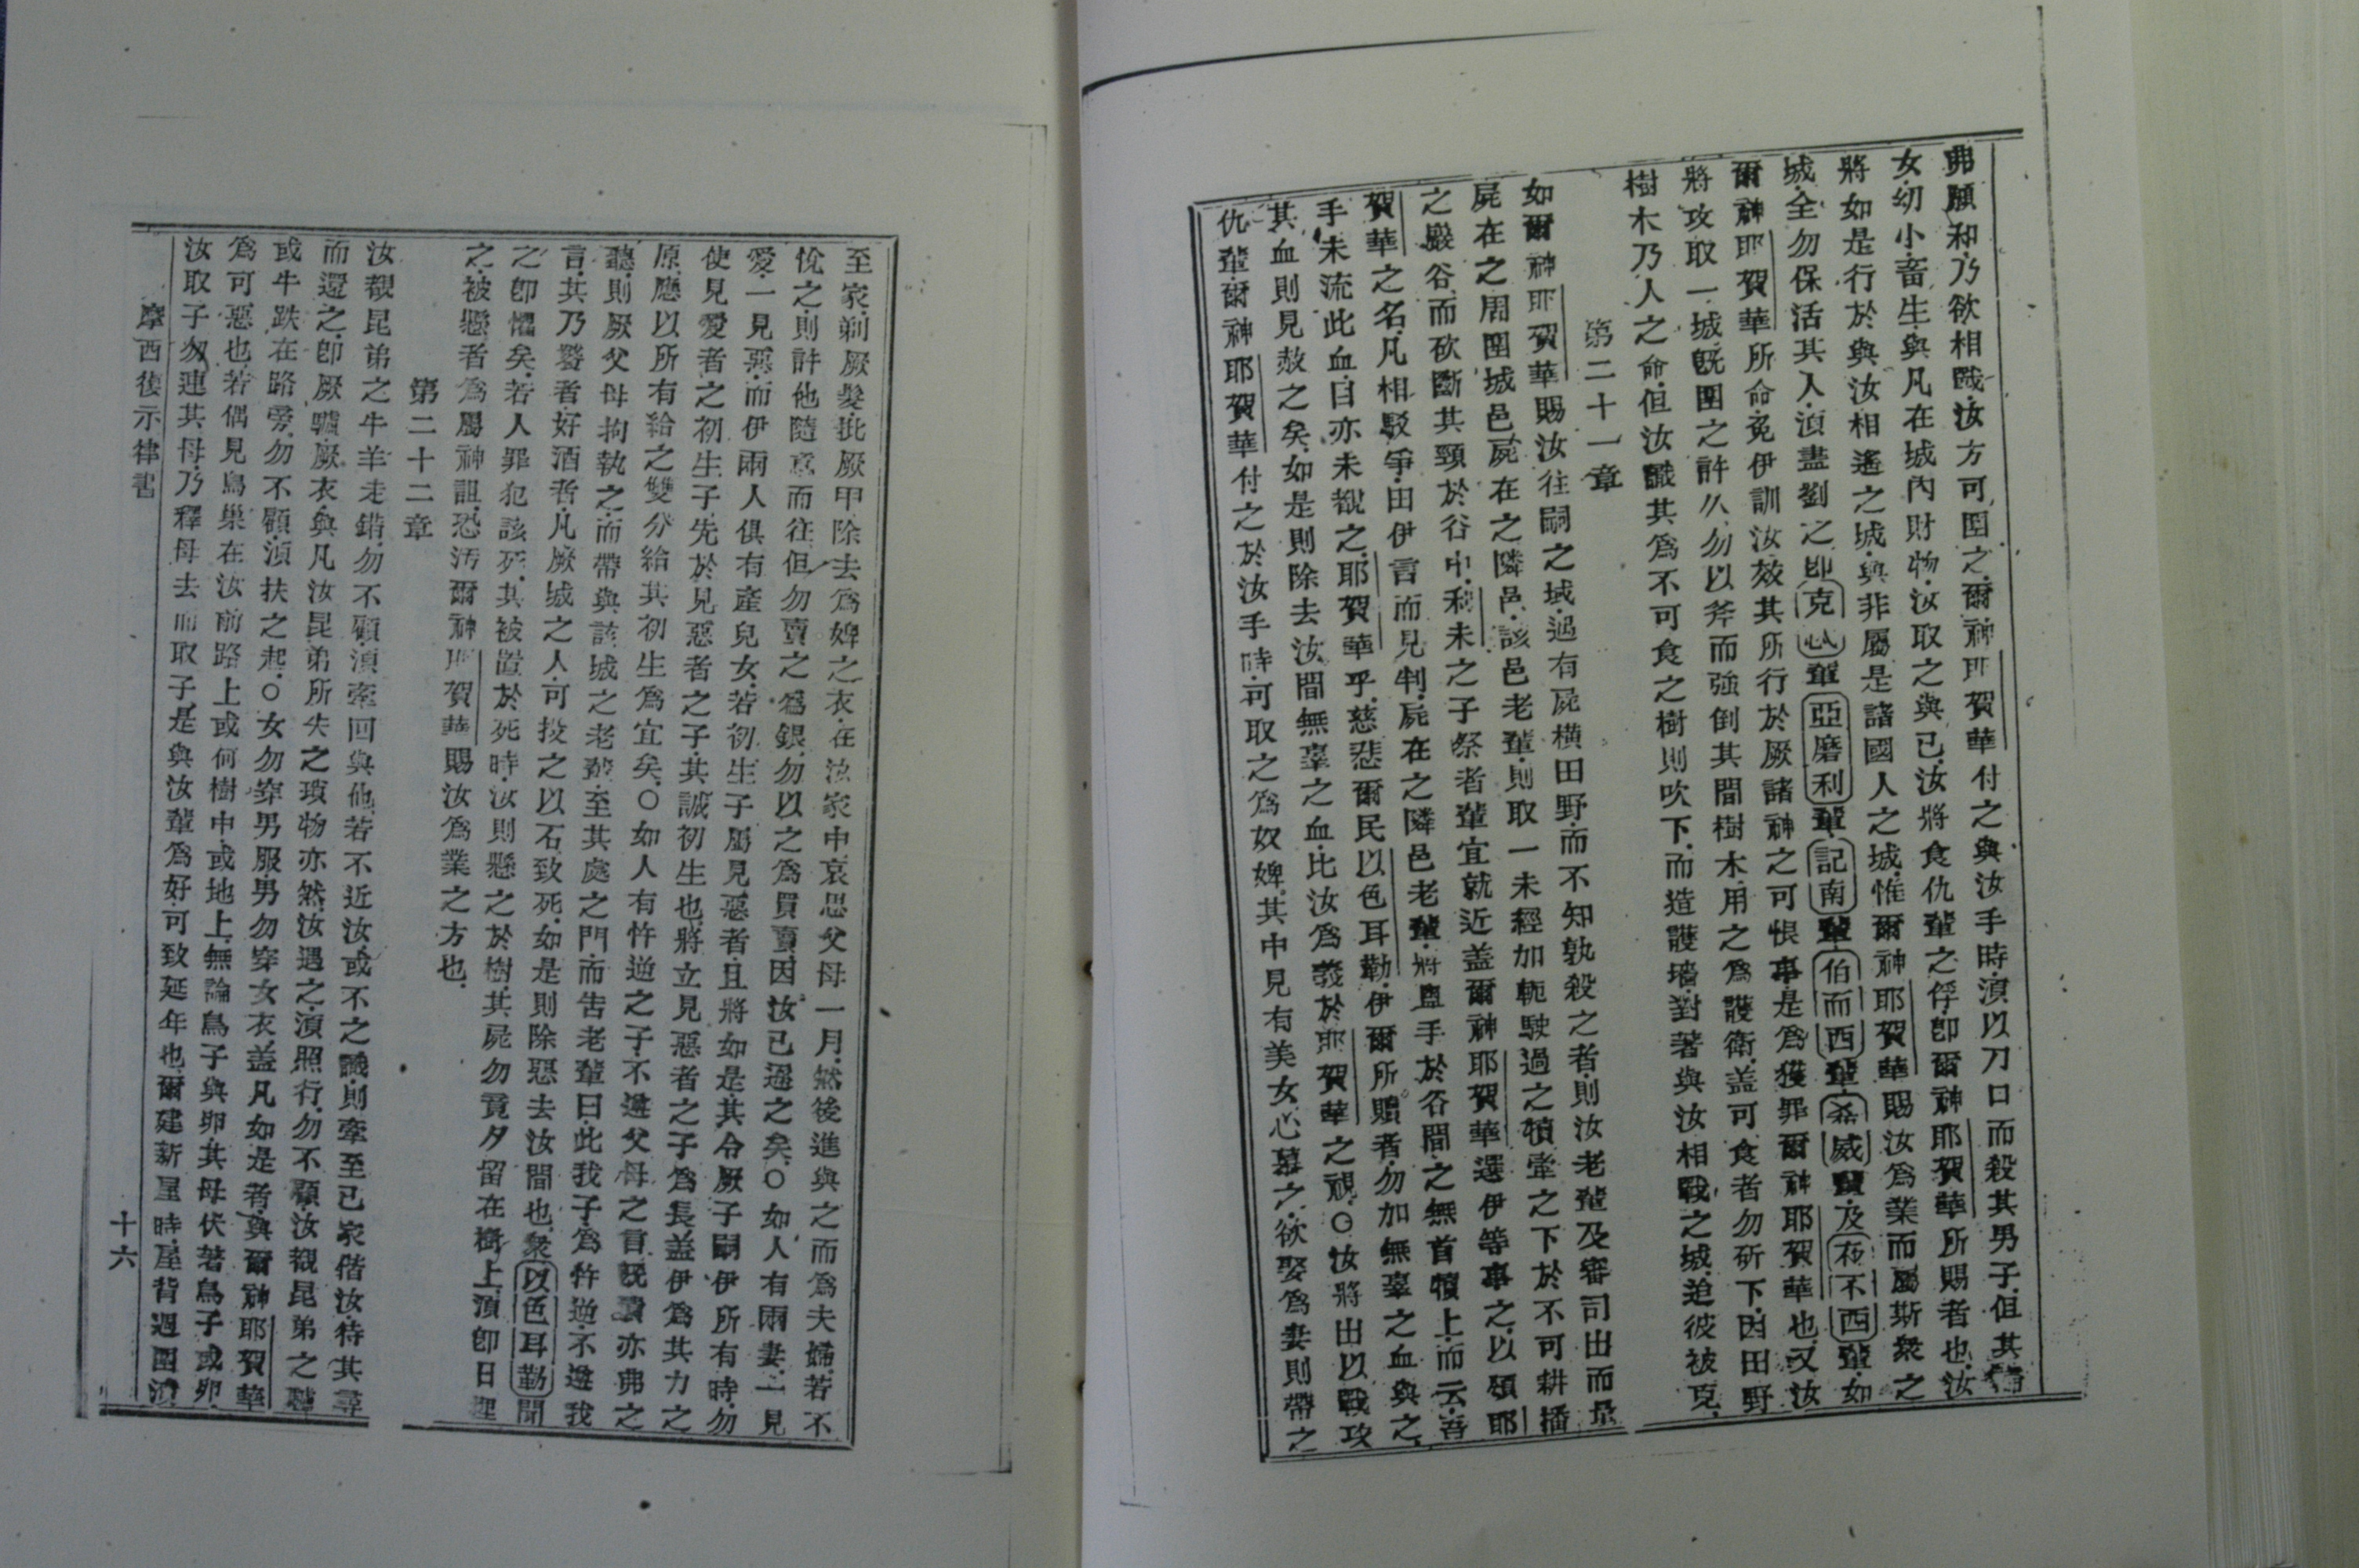 弗願和、乃欲相戰、汝方可圍之、爾神耶賀華付之與汝手時、湏以刀口而殺其男子、但其
女、幼小、畜生、與凡在城內財物、汝取之與己、汝將食仇輩之俘、卽爾神耶賀華所賜者也、汝
將如是行於與汝相遙之城、與非屬是諸國人之城、惟爾神耶賀華賜汝爲業而屬斯衆之
城、全勿保活其人、湏盡劉之、卽克心輩、亞磨利輩、記南輩、伯而西輩、希威輩、及夜不西輩、如
爾神耶賀華所命、免伊訓汝效其所行於厥諸神之可恨事、是爲獲罪爾神耶賀華也、又汝
將攻取一城、旣圍之許久、勿以斧而強倒其間樹木、用之爲護衛、盖可食者勿斫下、因田野
樹木乃人之命、但汝識其爲不可食之樹則吹下、而造護墻、對著與汝相戰之城、迨彼被克、
第二十一章
如爾神耶賀華賜汝往嗣之域、遇有屍橫田野、而不知孰殺之者、則汝老輩及審司出而量
屍在之周圍城邑、屍在之隣邑、該邑老輩、則取一未經加軛駛過之犢、牽之下於不可耕播
之巖谷、而砍斷其頸於谷中、利未之子祭者輩宜就近、盖爾神耶賀華選伊等事之、以頌耶
賀華之名、凡相駁爭、由伊言而見判、屍在之隣邑老輩、將盥手於谷間之無首犢上、而云、吾
手未流此血、目亦未覩之、耶賀華乎、慈悲爾民以色耳勒、伊爾所贖者、勿加無辜之血與之、
其血則見赦之矣、如是則除去汝間無辜之血、比汝爲義於耶賀華之視、○汝將出以戰攻
仇輩、爾神耶賀華付之於汝手時、可取之爲奴婢、其中見有美女心慕之、欲娶爲妻、則帶之
至家、剃厥髮、批厥甲、除去爲婢之衣、在汝家中哀思父母一月、然後進與之而爲夫婦、若不
悅之、則許他隨意而往、但勿賣之爲銀、勿以之爲買賣、因汝已逼之矣、○如人有兩妻、一見
愛、一見惡、而伊兩人俱有產兒女、若初生子屬見惡者、且將如是、其令厥子嗣伊所有時、勿
使見愛者之初生子、先於見惡者之子、其誠初生也、將立見惡者之子、爲長、盖伊爲其力之
原、應以所有給之、雙分給其初生爲宜矣、○如人有忤逆之子、不遵父母之言、旣責亦弗之
聽、則厥父母拘執之、而帶與該城之老輩、至其處之門、而告老輩曰、此我子爲忤逆、不遵我
言、其乃饕者、好酒者、凡厥城之人、可投之以石、致死、如是則除惡去汝間也、衆以色耳勒聞
之卽懼矣、若人罪犯該死、其被置於死時、汝則懸之於樹、其屍勿竟夕留在樹上、湏卽日埋
之、被懸者爲屬神詛、恐汚爾神耶賀華賜汝爲業之方也、
第二十二章
汝覩昆弟之牛羊走錯、勿不顧、湏牽回與他、若不近汝、或不之識、則牽至己家偕汝、待其尋
而還之、卽厥驢、厥衣、與凡汝昆弟所失之瑣物亦然、汝遇之、湏照行、勿不顧、汝覩昆弟之驢
或牛跌在路旁、勿不顧、湏扶之起、○女勿穿男服、男勿穿女衣、盖凡如是者、與爾神耶賀華
爲可惡也、若偶見鳥巢在汝前路上、或何樹中、或地上、無論鳥子與卵、其母伏著鳥子或卵、
汝取子勿連其母、乃釋母去而取子、是與汝輩爲好、可致延年也、爾建新屋時、屋背週圍湏
摩西後示律書 十六